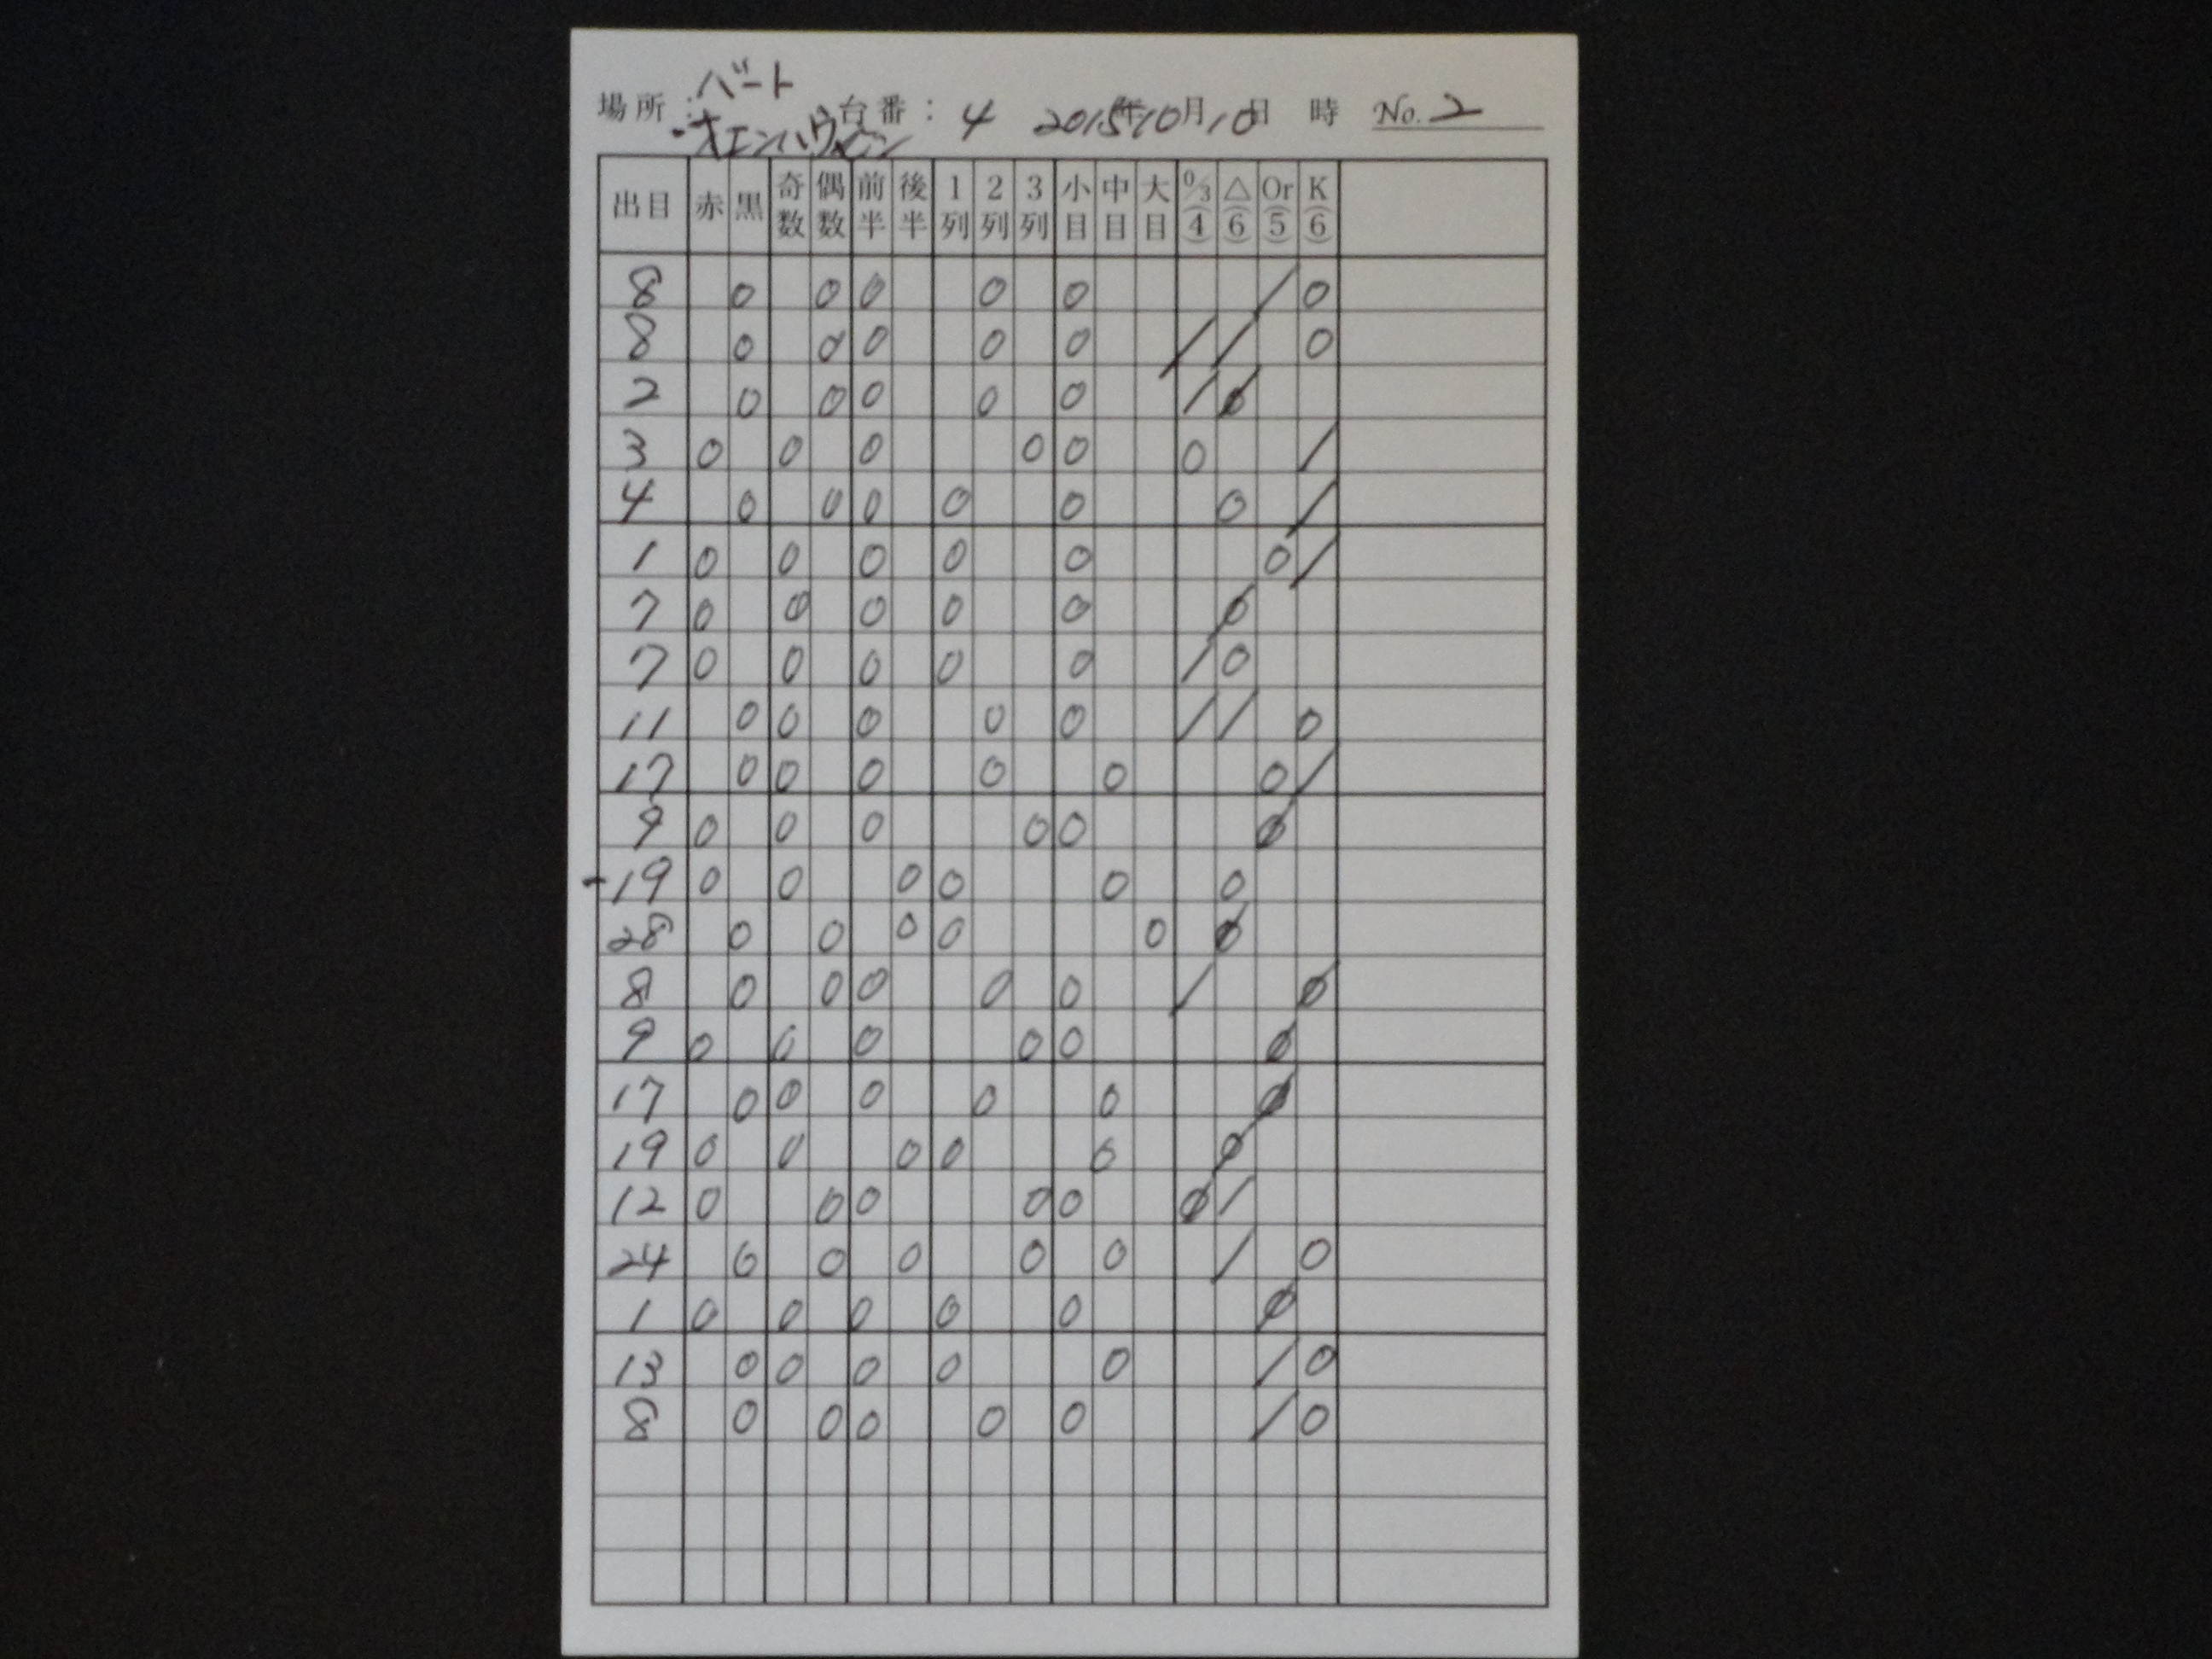 場所：バート・オエンハウゼン 台番：4 2015年10月10日 時 No. 2
出目 赤 黒 奇数 偶数 前半 後半 1列 2列 3列 小目 中目 大目 0/3(4) △(6) Or(5) K(6)
8 0 0 0 0 0 / 0
8 0 0 0 0 0 / / 0
2 0 0 0 0 0 / Ø
3 0 0 0 0 0 0 /
4 0 0 0 0 0 0 /
1 0 0 0 0 0 0 /
7 0 0 0 0 0 Ø
7 0 0 0 0 0 / 0
11 0 0 0 0 0 / / 0
17 0 0 0 0 0 0 /
9 0 0 0 0 0 Ø
-19 0 0 0 0 0 0
28 0 0 0 0 0 Ø
8 0 0 0 0 0 / Ø
9 0 0 0 0 0 Ø
17 0 0 0 0 0 Ø
19 0 0 0 0 0 Ø
12 0 0 0 0 0 Ø /
24 0 0 0 0 0 / 0
1 0 0 0 0 0 Ø
13 0 0 0 0 0 / 0
8 0 0 0 0 0 / 0